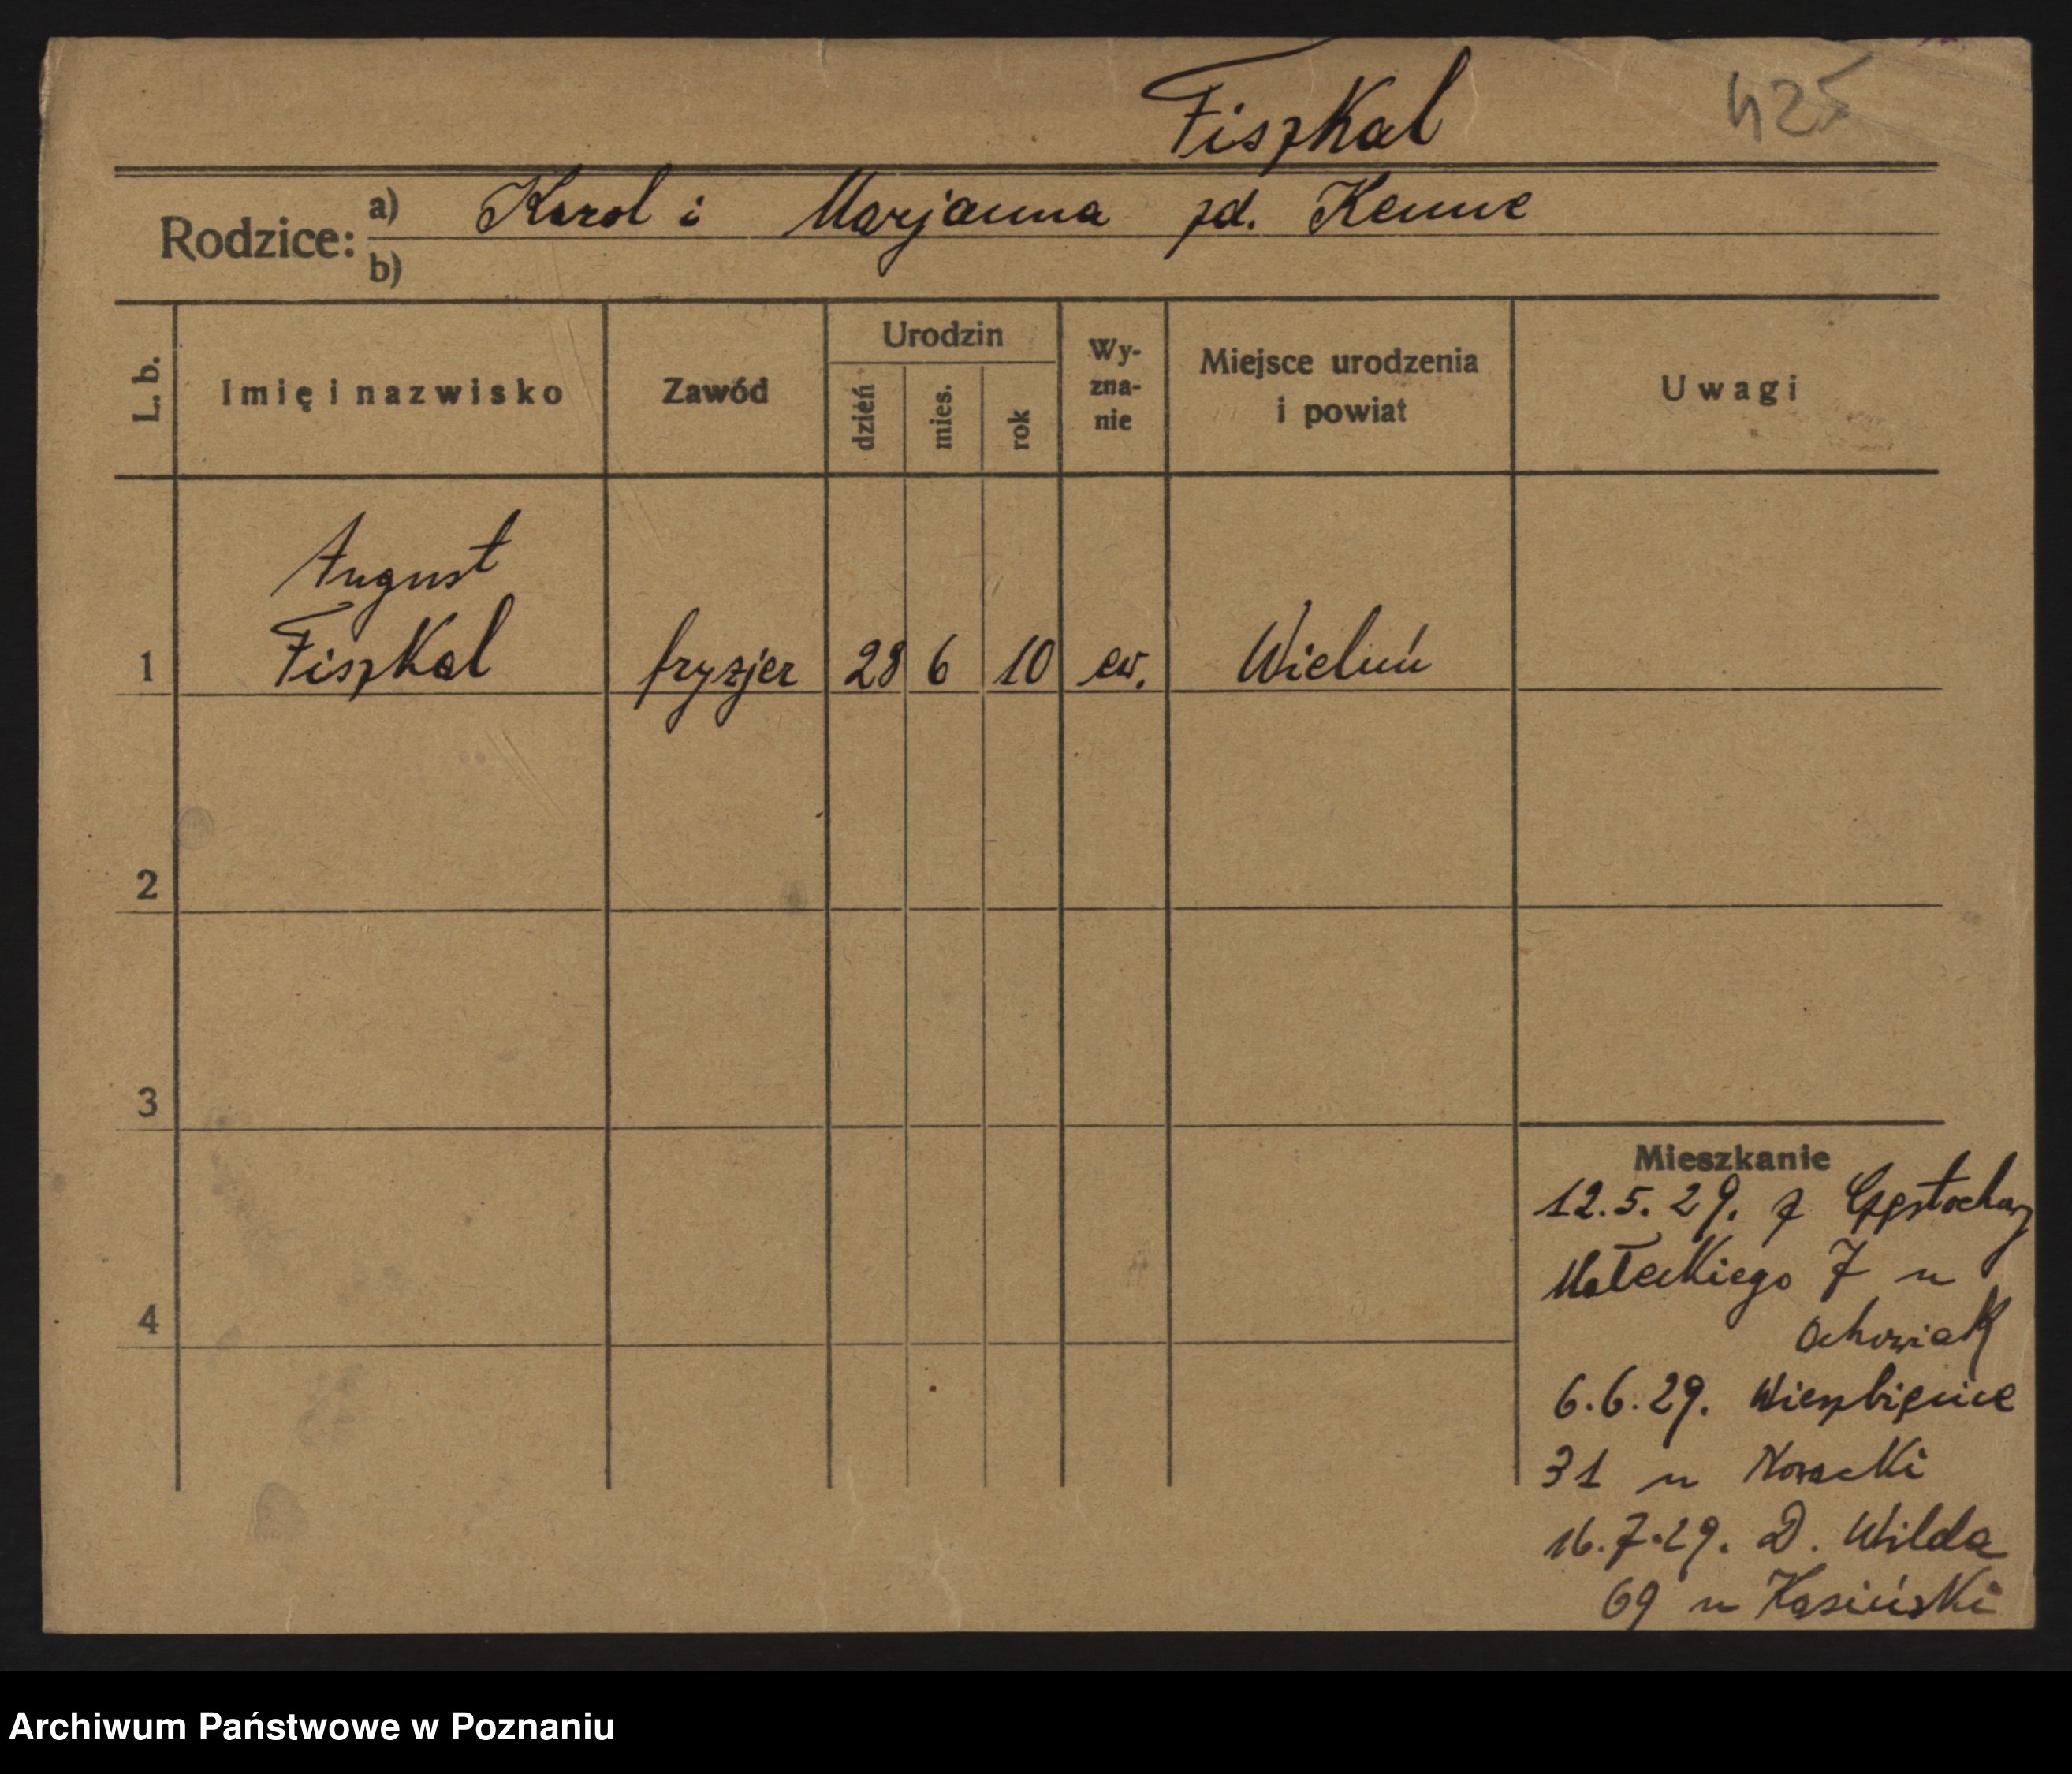 Fiszkal 425
Rodzice: a) Karol i Marjanna zd. Kenne
b)
L. b. Imię i nazwisko Zawód Urodzin dzień mies. rok Wy-zna-nie Miejsce urodzenia i powiat Uwagi
August
1 Fiszkal fryzjer 28 6 10 ew. Wieluń
2
3
Mieszkanie
12.5.29. z Częstochowy
Małeckiego 7 u
4
Ochowiak
6.6.29. Wierzbięcice
31 u Nowacki
16.7.29. D. Wilda
69 u Kasiński
Archiwum Państwowe w Poznaniu